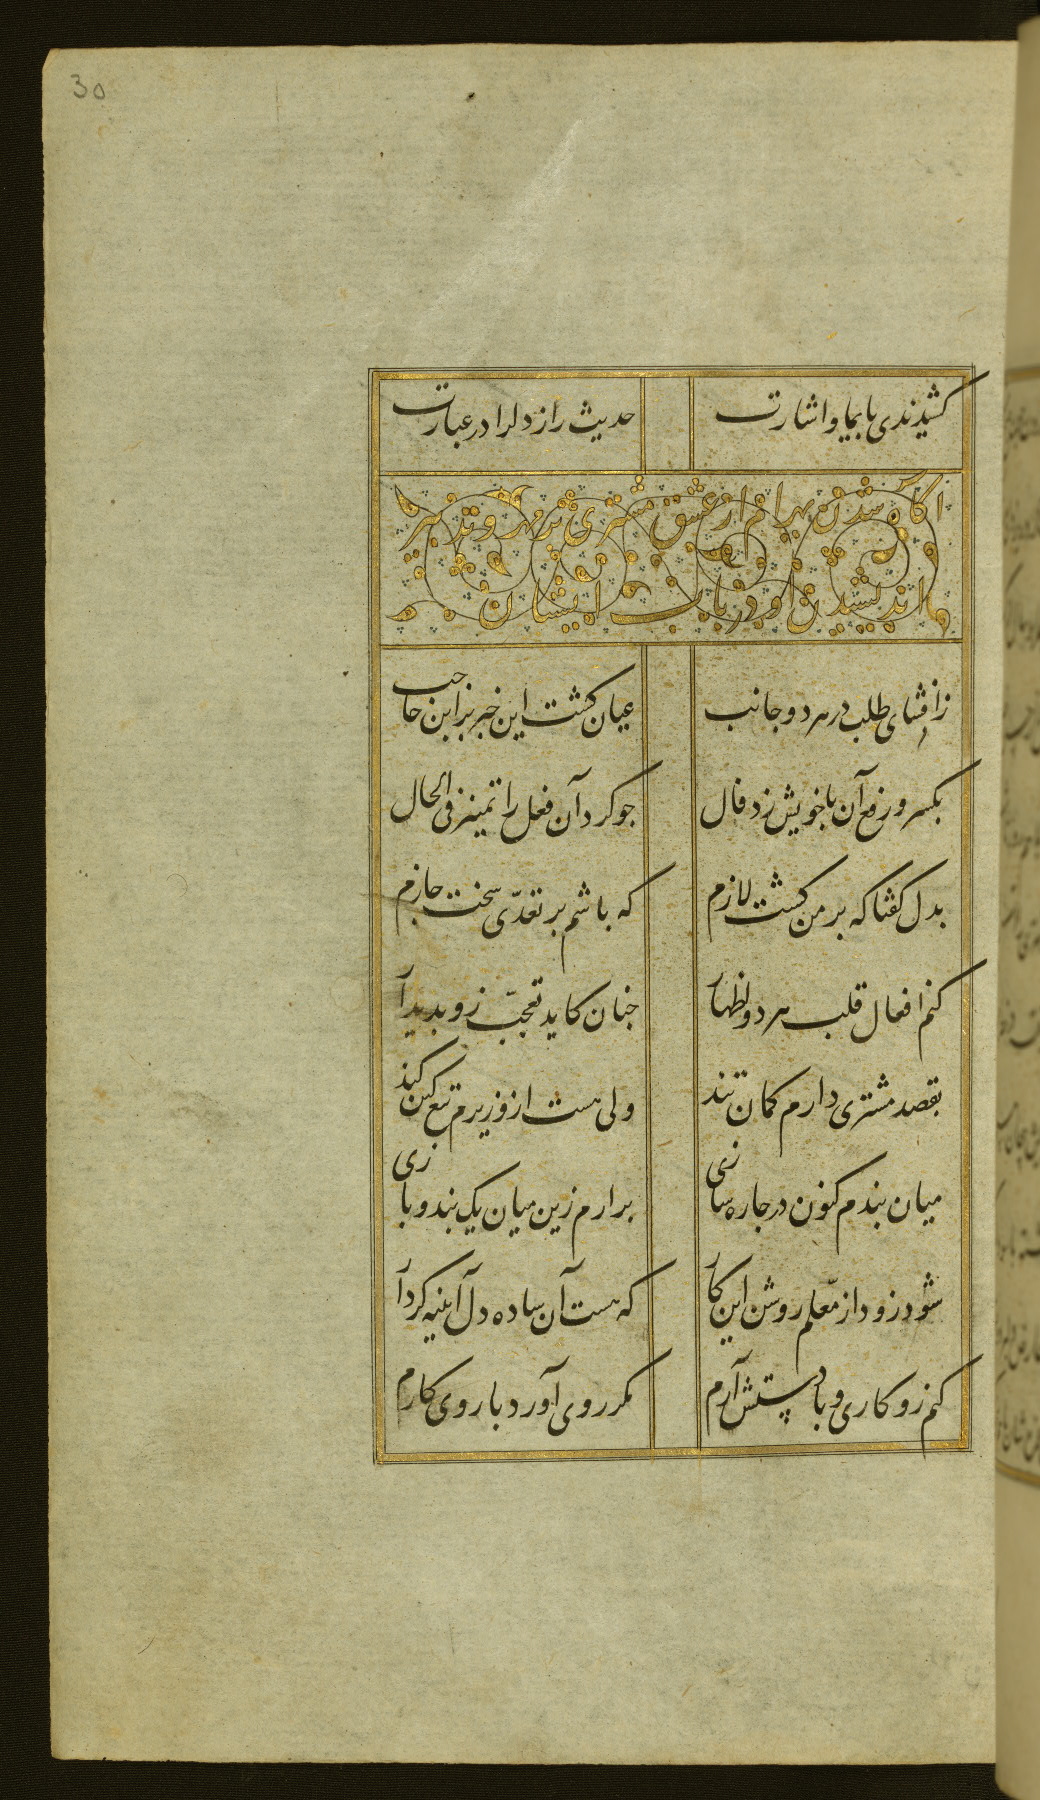 30
کشیدندی بایما و اشارت
حدیث راز دلرا در عبارت
اکاه شدن بهرام از عشق مشتری بر مهر و تدبیر
اندیشیدن او در باب ایشان
زافشای طلب در هر دو جانب
عیان کشت این خبر بر ابن حاجب
بکسر و رفع آن با خویش زد فال
جو کرد آن فعل را تمییز فی الحال
بدل کفتا که بر من کشت لازم
که باشم بر تعدّی سخت جازم
کنم افعال قلب هر دو اظهار
جنان کاید تعجّب زو بدیدار
بقصد مشتری دارم کمان تند
ولی هست از وزیرم تیغ کین کند
میان بندم کنون در جاره سازی
برارم زین میان یک بند و بازی
شود زود از معلّم روشن این کار
که هست آن ساده دل آینه کردار
کنم زو کاری و با دستش آرم
مکر روی آورد با روی کارم